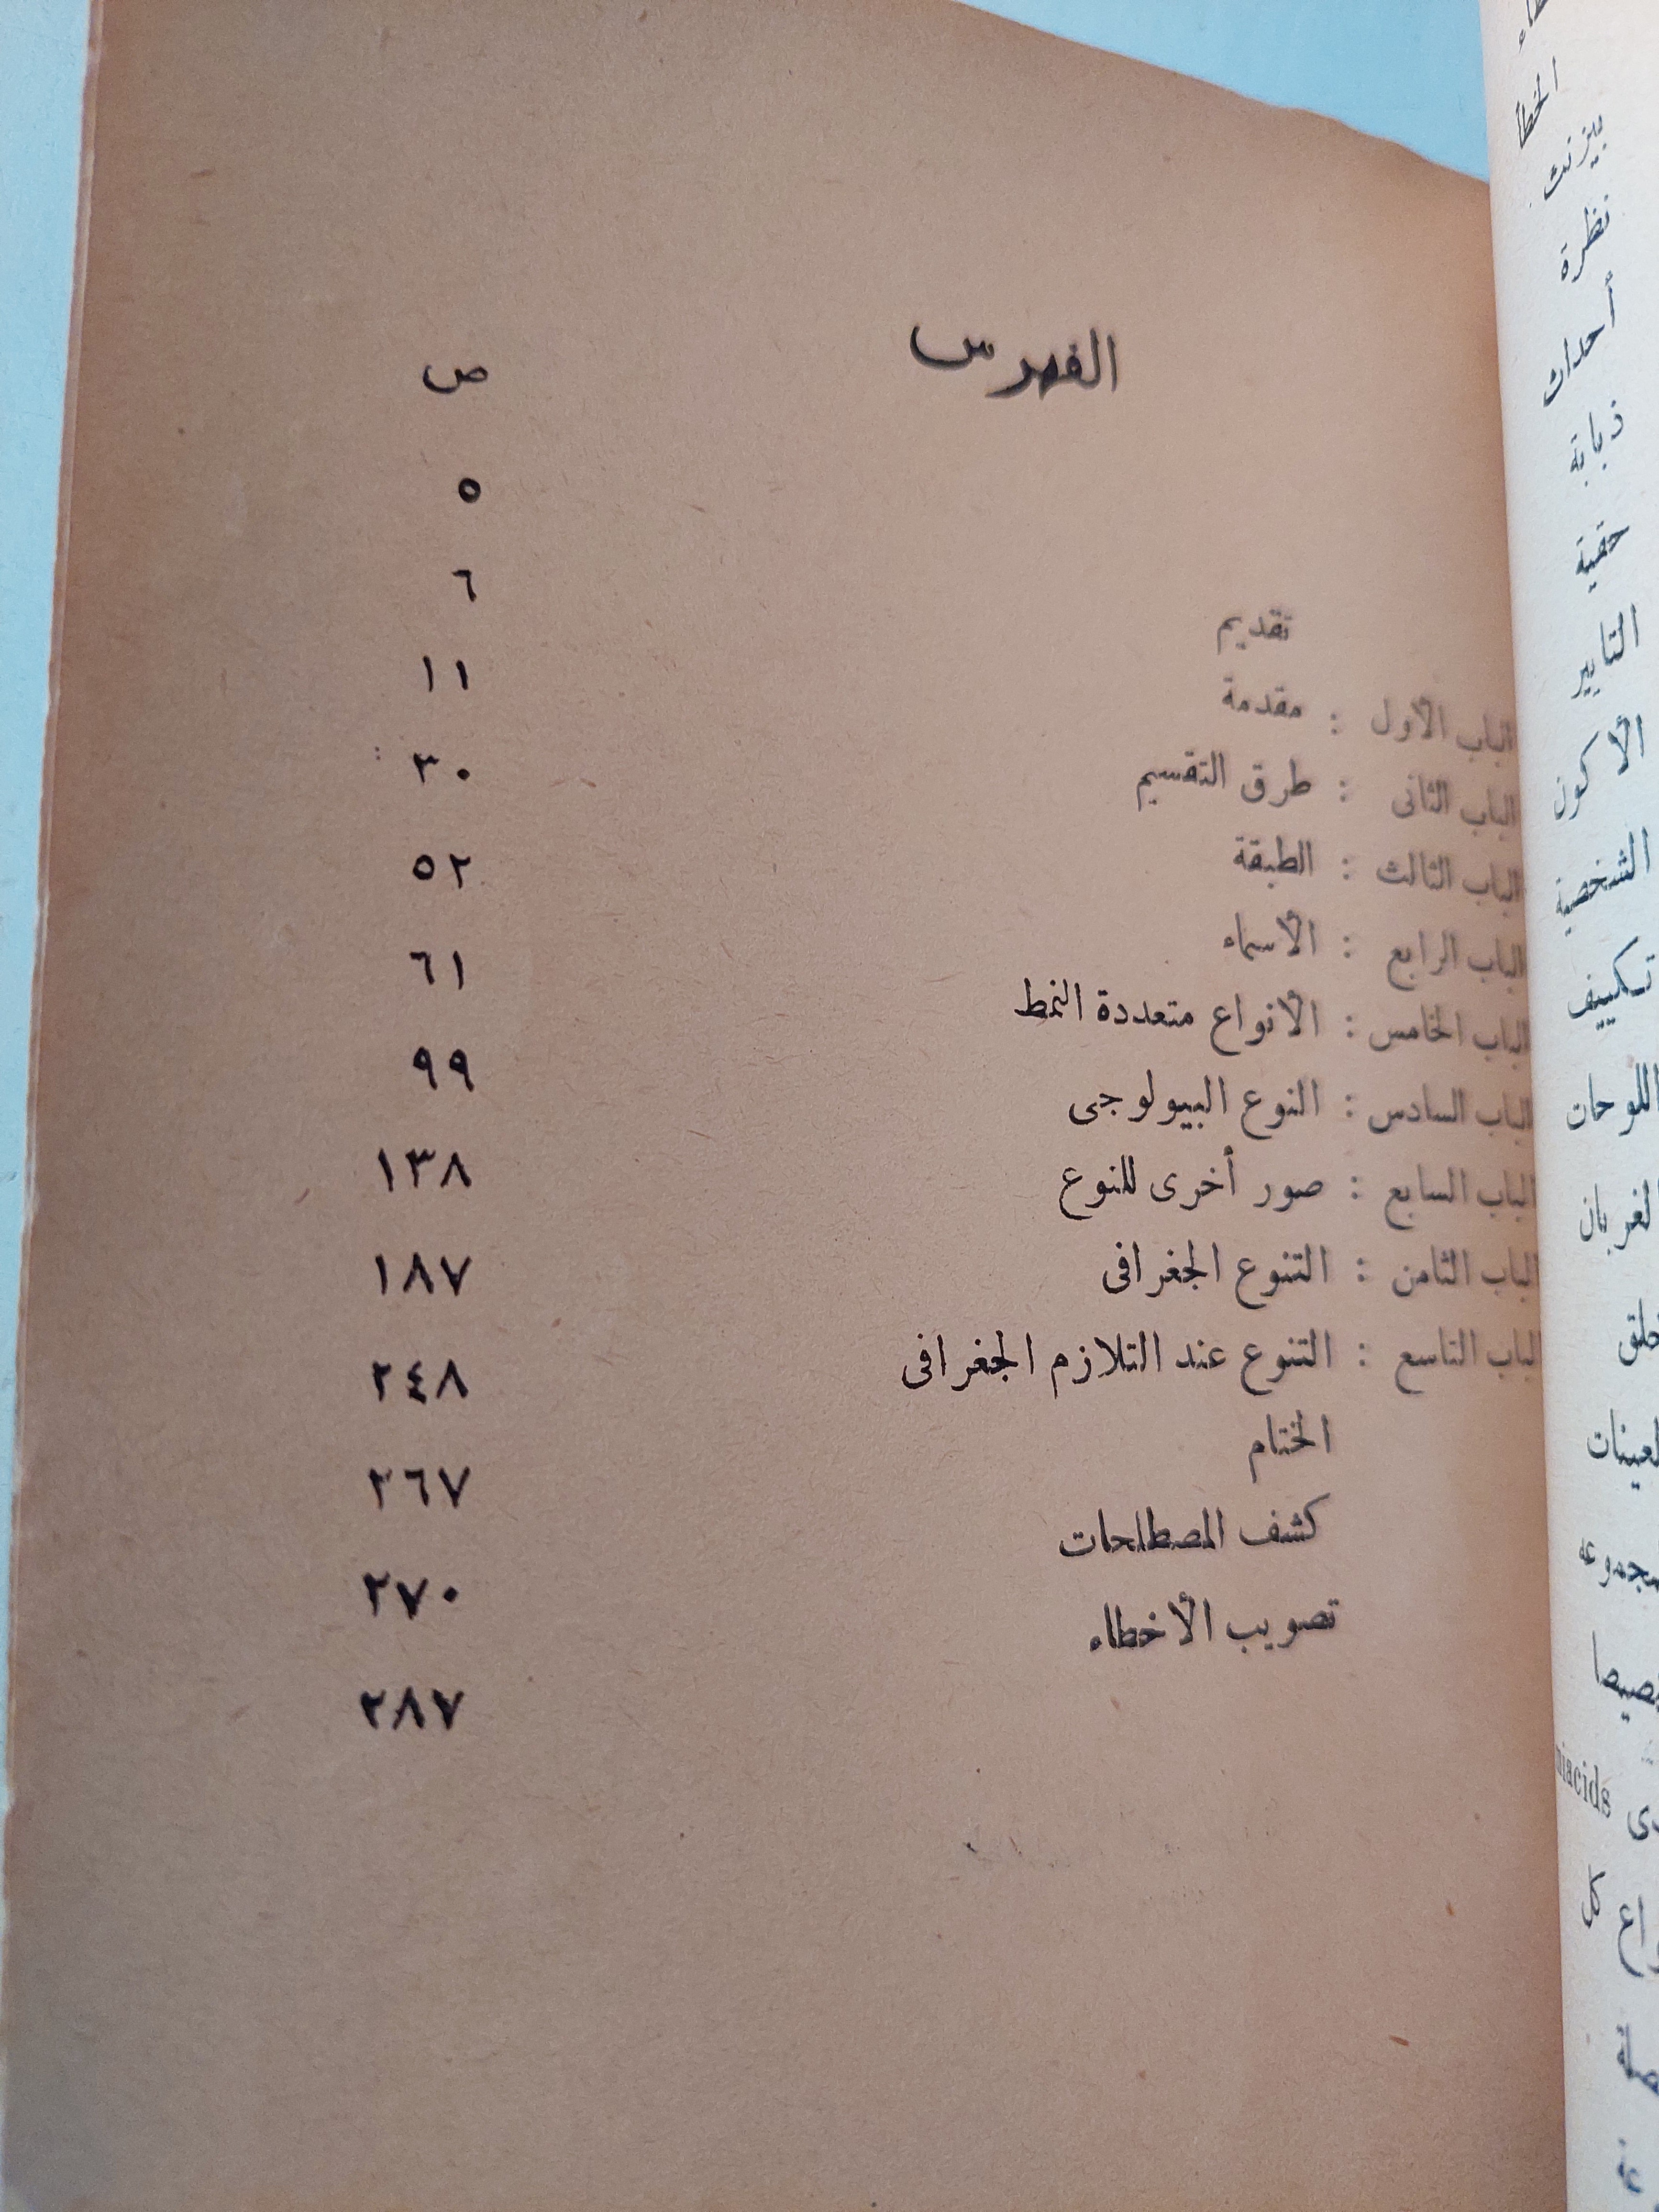 الفهرس ص
تقديم ٥
الباب الأول : مقدمة ٦
الباب الثانى : طرق التقسيم ١١
الباب الثالث : الطبقة ٣٠
الباب الرابع : الأسماء ٥٢
الباب الخامس : الانواع متعددة النمط ٦١
الباب السادس : النوع البيولوجى ٩٩
الباب السابع : صور أخرى للنوع ١٣٨
الباب الثامن : التنوع الجغرافى ١٨٧
الباب التاسع : التنوع عند التلازم الجغرافى ٢٤٨
الختام ٢٦٧
كشف المصطلحات ٢٧٠
تصويب الأخطاء ٢٨٧
الخطأ
نظرة
أحداث
ذبابة
التايير
الأكون
الشخصية
تكييف
اللوحات